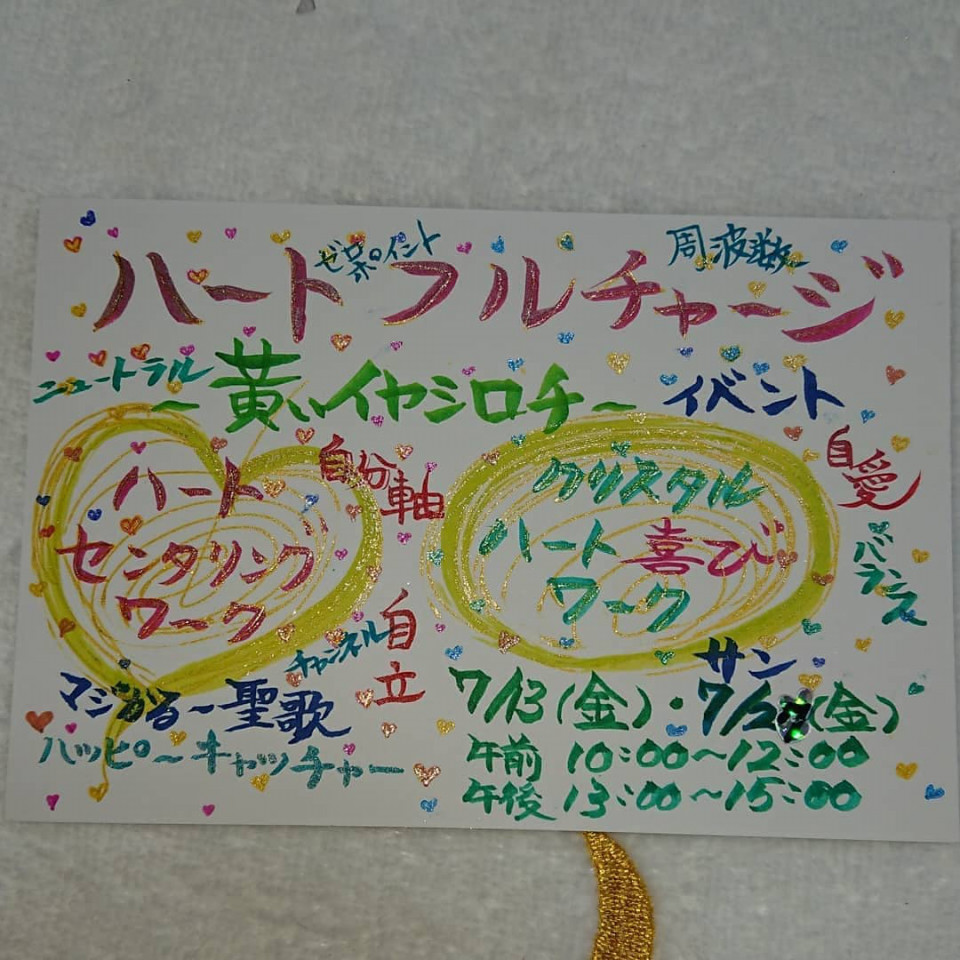 ゼロポイント
周波数
ハートフルチャージ
ニュートラル
～黄いイヤシロチ～ イベント
ハート
センタリング
ワーク
自分軸
クリスタル
ハート喜び
ワーク
自愛
バランス
チャンネル
自立
サン
マジかる～聖歌
ハッピ～キャッチャー
7/13(金)・7/2 (金)
午前 10:00～12:00
午後 13:00～15:00